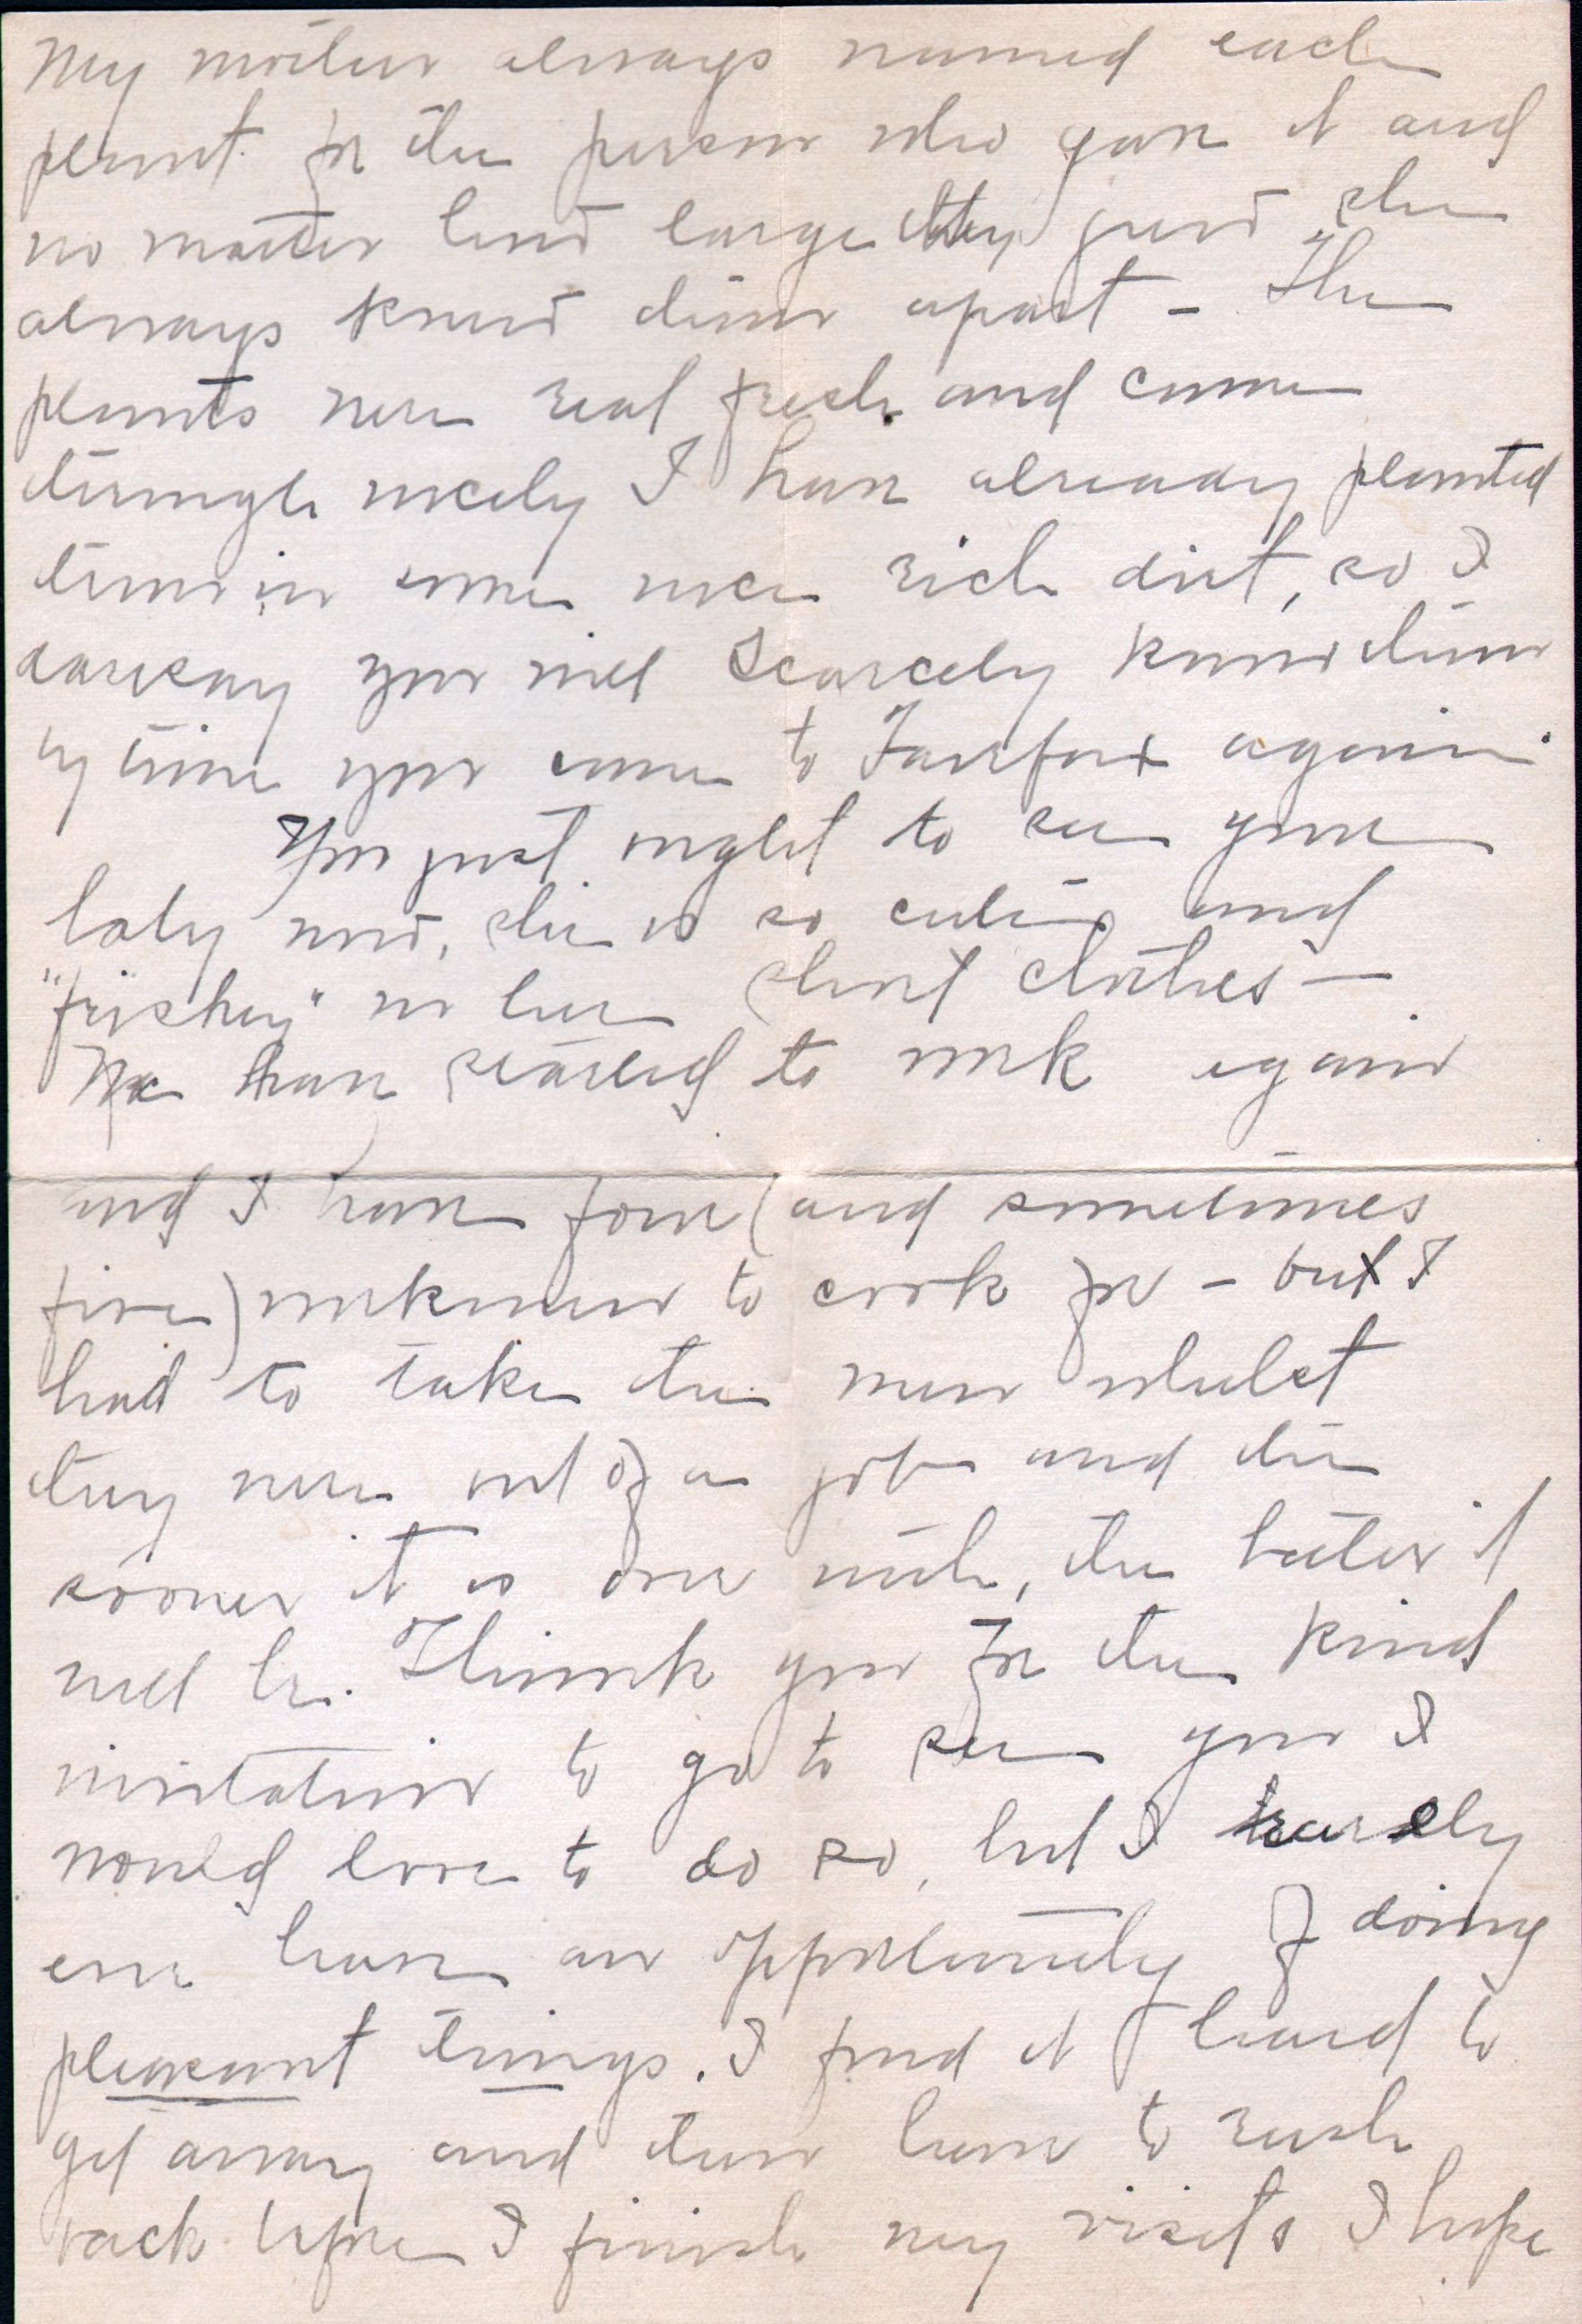 My mother always named each
plant for the person who gave it and
no matter how large they grew she
always knew them apart - The
plants were real fresh and came
through nicely I have already planted
them in some nice rich dirt, so I
daresay you will scarcely know them
by time you come to Fairfax again.
You just ought to see your
baby now, she is so cute and
"friskey" in her short clothes -
We have started to work again
and I have four (and sometimes
five) workmen to cook for - but I
had to take the men whilst
they were out of a job and the
sooner it is over with, the better it
will be. Thank you for the kind
invitation to go to see you I
would love to do so, but I rarely
ever have an opportunity of doing
pleasant things. I find it hard to
get away and then have to rush
back before I finish my visits I hope